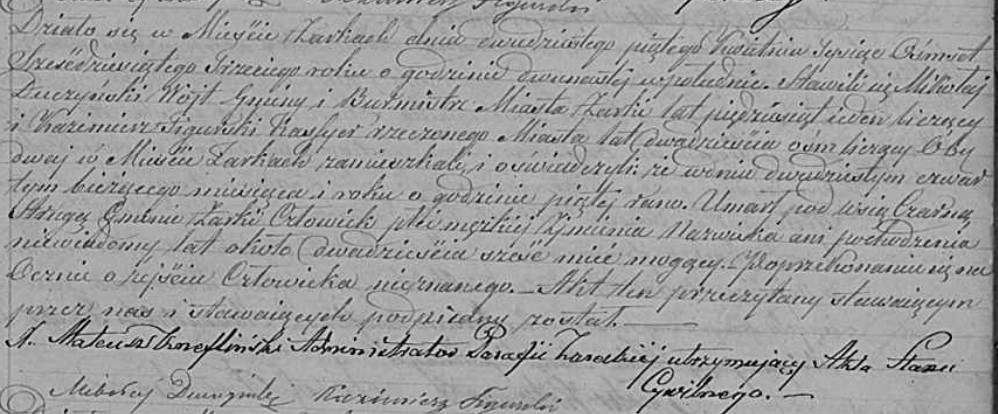 Działo się w Mieście Żarkach dnia dwudziestego piątego Kwietnia Tysiąc Ośmset
Sześćdziesiątego Trzeciego roku o godzinie dwunastej w południe. Stawili się Mikołaj
Duczyński Wójt Gminy i Burmistrz Miasta Żarki lat pięćdziesiąt jeden liczący
i Kazimierz Figurski Kassyer rzeczonego Miasta lat dwadzieścia ośm liczący Oby
dwaj w Mieście Żarkach zamieszkali, i oświadczyli: że w dniu dwudziestym czwar
tym bieżącego miesiąca i roku o godzinie piątej rano. Umarł pod wsią Czarną
Strugą Gminie Żarki Człowiek płci męzkiej z Imienia Nazwiska ani pochodzenia
niewiadomy lat około dwadzieścia sześć mieć mogący. Po przekonaniu się na
Ocznie o zejściu Człowieka nieznanego. Akt ten przeczytany stawaiącym
przez nas i stawaiących podpisany został.
X. Mateusz Administrator Parafii Żareckiej utrzymujący Akta Stanu
Cywilnego.
Mikołaj Kazimierz Figurski